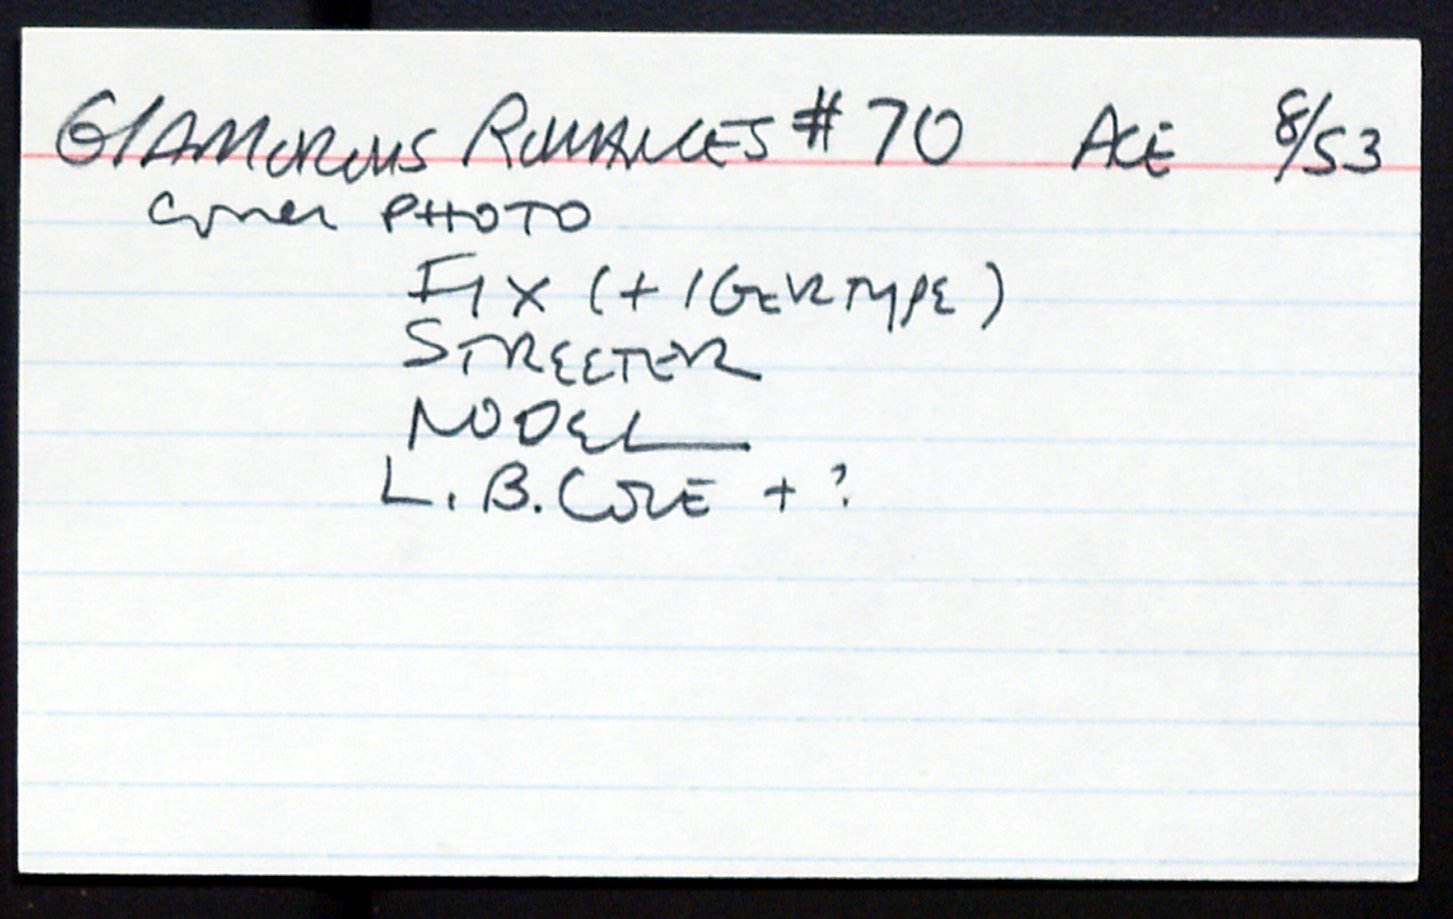 GLAMOROUS ROMANCES #70 ACE 8/53
Cover PHOTO
FIX (+ IGER TYPE)
STREETER
NODEL
L. B. COLE + ?